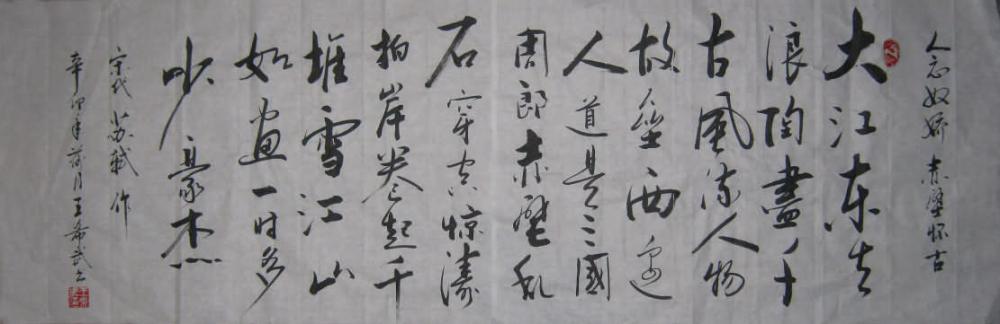 念奴娇 赤壁怀古
大江东去
浪陶盡千
古風流人物
故壘西邊
人道是三國
周郎赤壁乱
石穿空惊濤
拍岸卷起千
堆雪江山
如画一时多
少豪杰
宋代 苏轼 作
辛卯年月王希武书